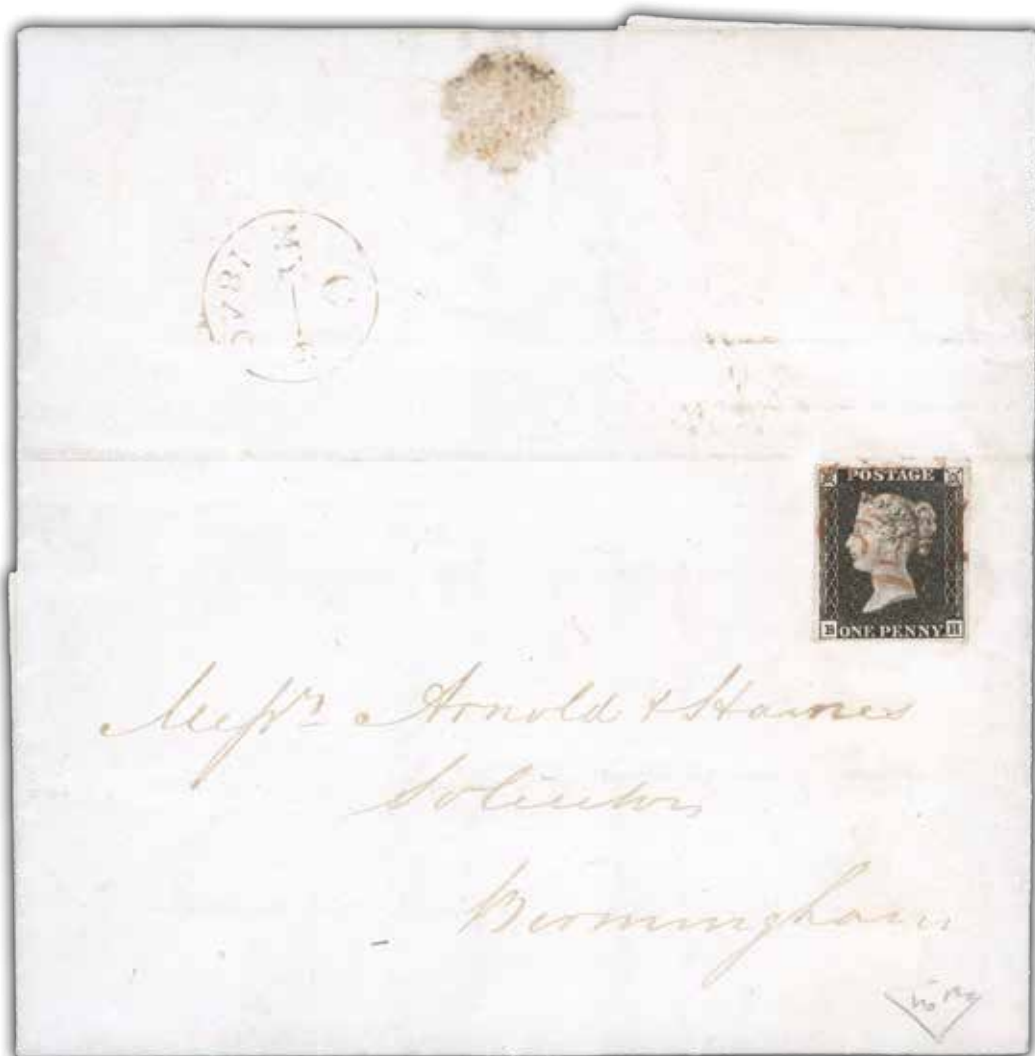 C
MY
1840
POSTAGE
B ONE PENNY H
Messrs Arnold & Haines
Solicitors
Birmingham